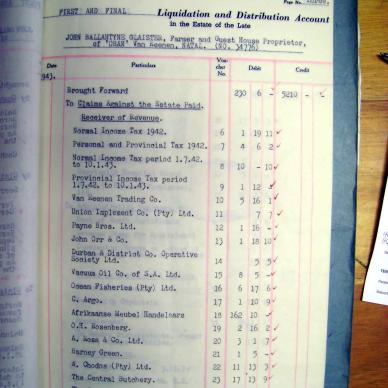 Page No.
FIRST AND FINAL Liquidation and Distribution Account
in the Estate of the Late
JOHN BALLANTYNE GLAISTER, Farmer and Guest House Proprietor,
of "DHAN" Van Reenen, NATAL. (NO. 34776)
Date Particulars Vou-cher No. Debit Credit
1943.
Brought Forward 230 6 - 5210 - -
To Claims Against the Estate Paid.
Receiver of Revenue.
Normal Income Tax 1942. 6 1 19 11
Personal and Provincial Tax 1942. 7 4 6 2
Normal Income Tax period 1.7.42
to 10.1.43. 8 10 - 10
Provincial Income Tax period
1.7.42. to 10.1.43. 9 1 12
Van Reenen Trading Co. 10 5 16 1
Union Implement Co. (Pty) Ltd. 11 7 7
Payne Bros. Ltd. 12 1 16 -
John Orr & Co. 13 1 18 10
Durban & District Co. Operative
Society Ltd. 14 5 5
Vacuum Oil Co. of S.A. Ltd. 15 8 5 -
Ocean Fisheries (Pty) Ltd. 16 6 17 6
C. Argo. 17 1 10 9
Afrikaanse Meubel Handelaars 18 162 10 -
O.H. Rozenberg. 19 2 16 2
A. Ross & Co. Ltd. 20 3 1 7
Barney Green. 21 1 5 -
A. Chodos (Pty) Ltd. 22 11 13 3
The Central Butchery. 23 1 13 9